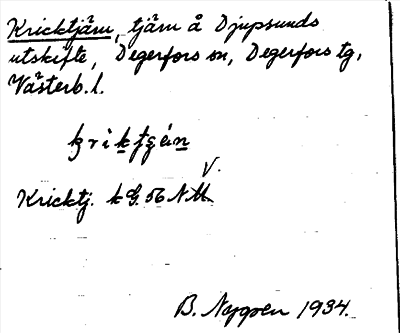 Kricktjärn, tjärn å Djupsunds
utskifte, Degerfors sn, Degerfors tg,
Västerb. l.
V.
Kricktj. k G. 56 NM
B. Nygren 1934.